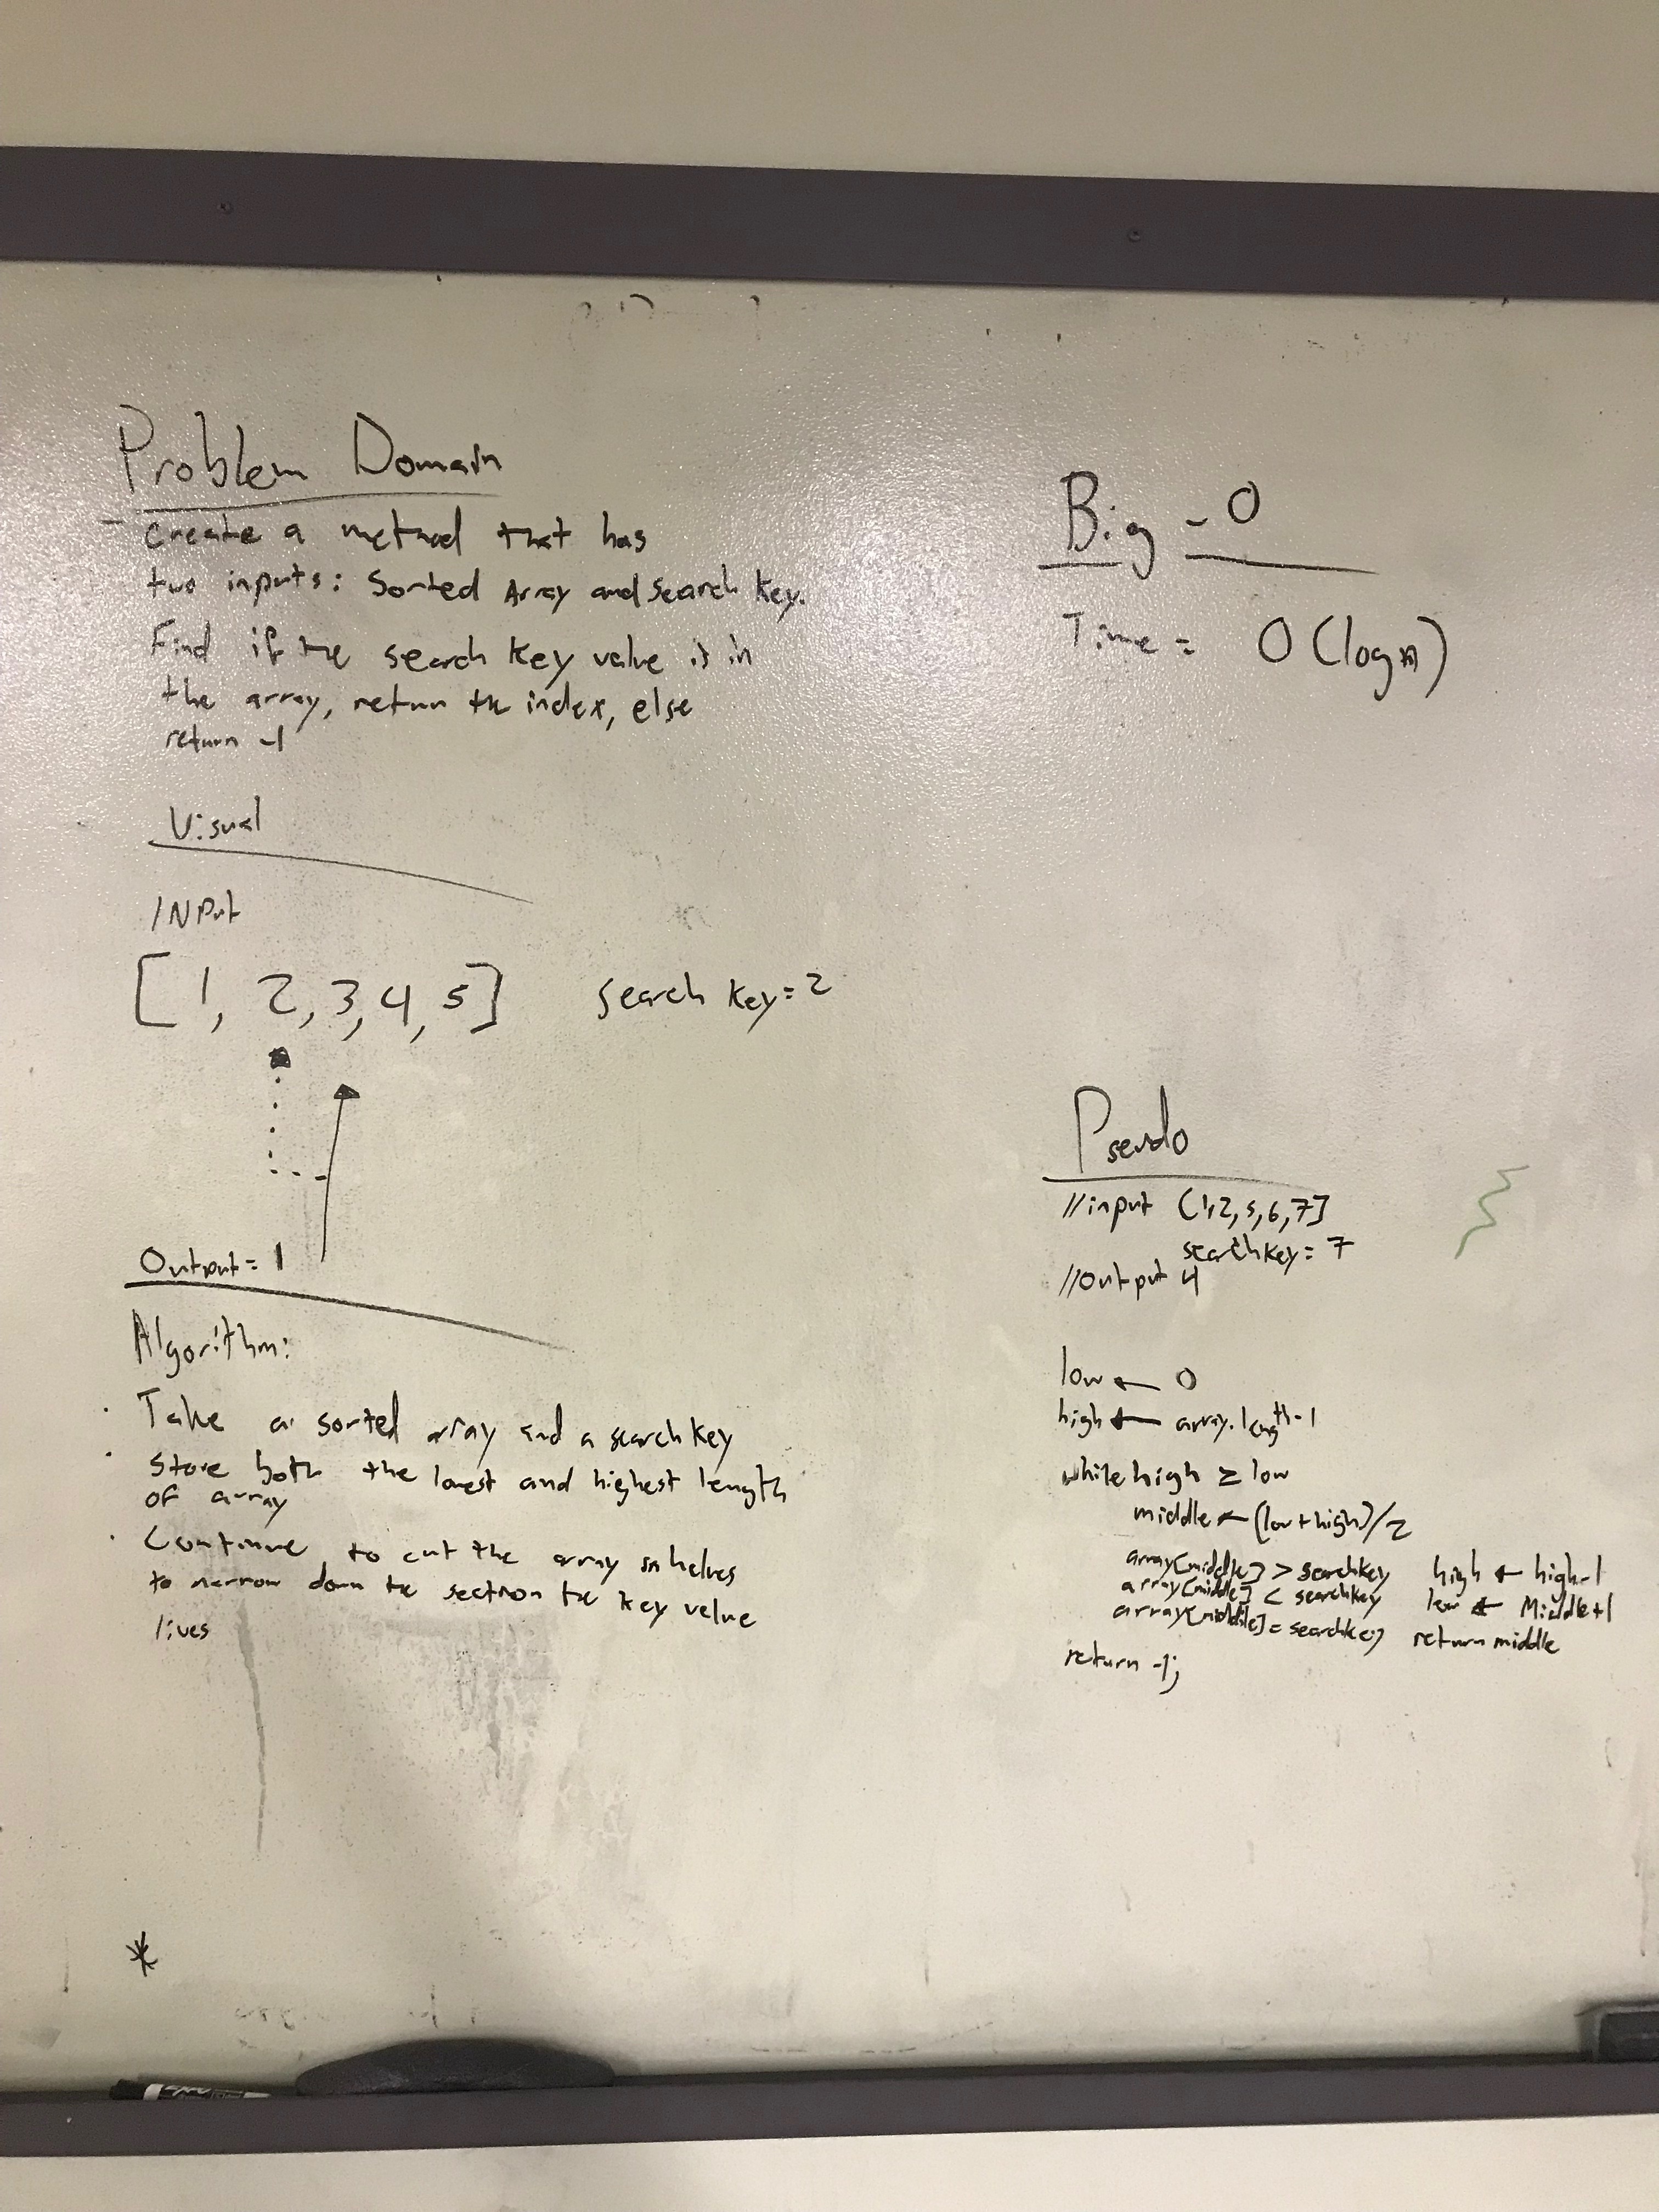 Problem Domain
- create a method that has
two inputs: Sorted Array and search key.
Find if the search key value is in
the array, return the index, else
return -1
Visual
INPut
[1, 2, 3, 4, 5] search key=2
Output= 1
Algorithm:
· Take a sorted array and a search key
· Store both the lowest and highest length
of array
· Continue to cut the array in halves
to narrow down the section the key value
lives
*
Big-O
Time = O(log n)
Pseudo
//input [1,2,5,6,7]
searchkey= 7
//output 4
low ← 0
high ← array.length-1
while high ≥ low
middle ← (low+high)/2
array[middle] > searchkey high ← high-1
array[middle] < searchkey low ← Middle+1
array[middle] = searchkey return middle
return -1;